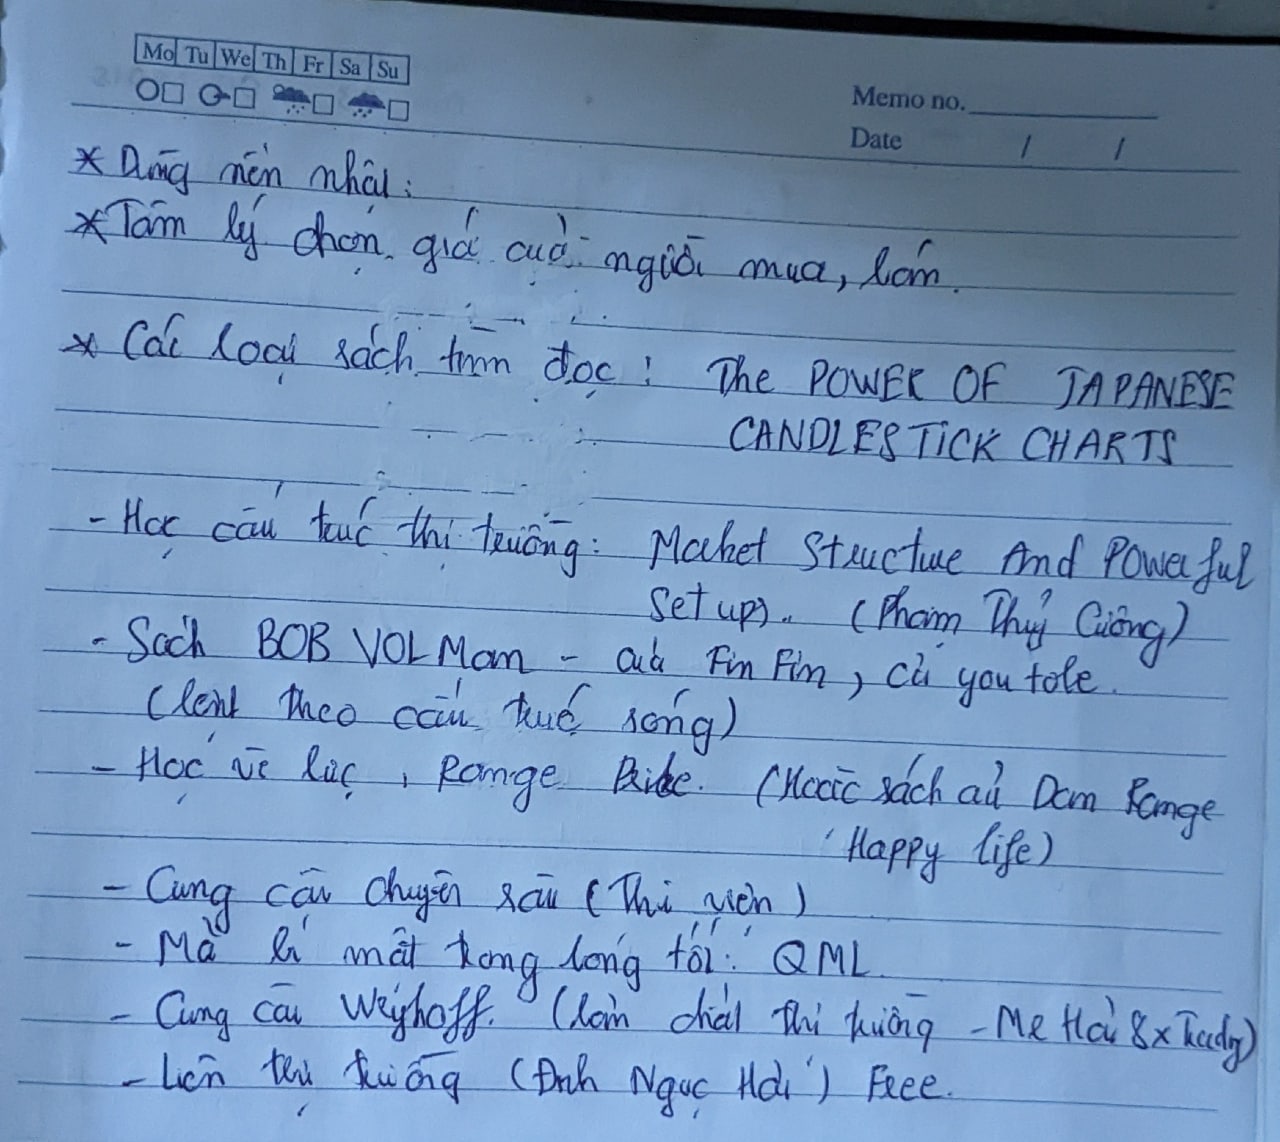 Mo Tu We Th Fr Sa Su
Memo no.
Date / /
* Dùng nến nhật:
* Tâm lý chọn giá của người mua, lớn.
* Các loại sách tìm đọc: The POWER OF JAPANESE
CANDLESTICK CHARTS
- Học cấu trúc thị trường: Market Structure And Powerful
Setups. (Phạm Thuỷ Cường)
- Sách BOB VOLMam - của Fin Fin, củ you tobe.
(lent theo cấu trúc sóng)
- Học về lực, Range Pride. ( sách củ Dam Range
Happy life)
- Cung cầu chuyên sâu (Thi viện)
- Mả bí mật trong bóng tối: QML
- Cung cầu Weyhoff. ( thị trường - Mr Hải 8x Trady)
- Liên thị trường (Đinh Ngọc Hải) Free.